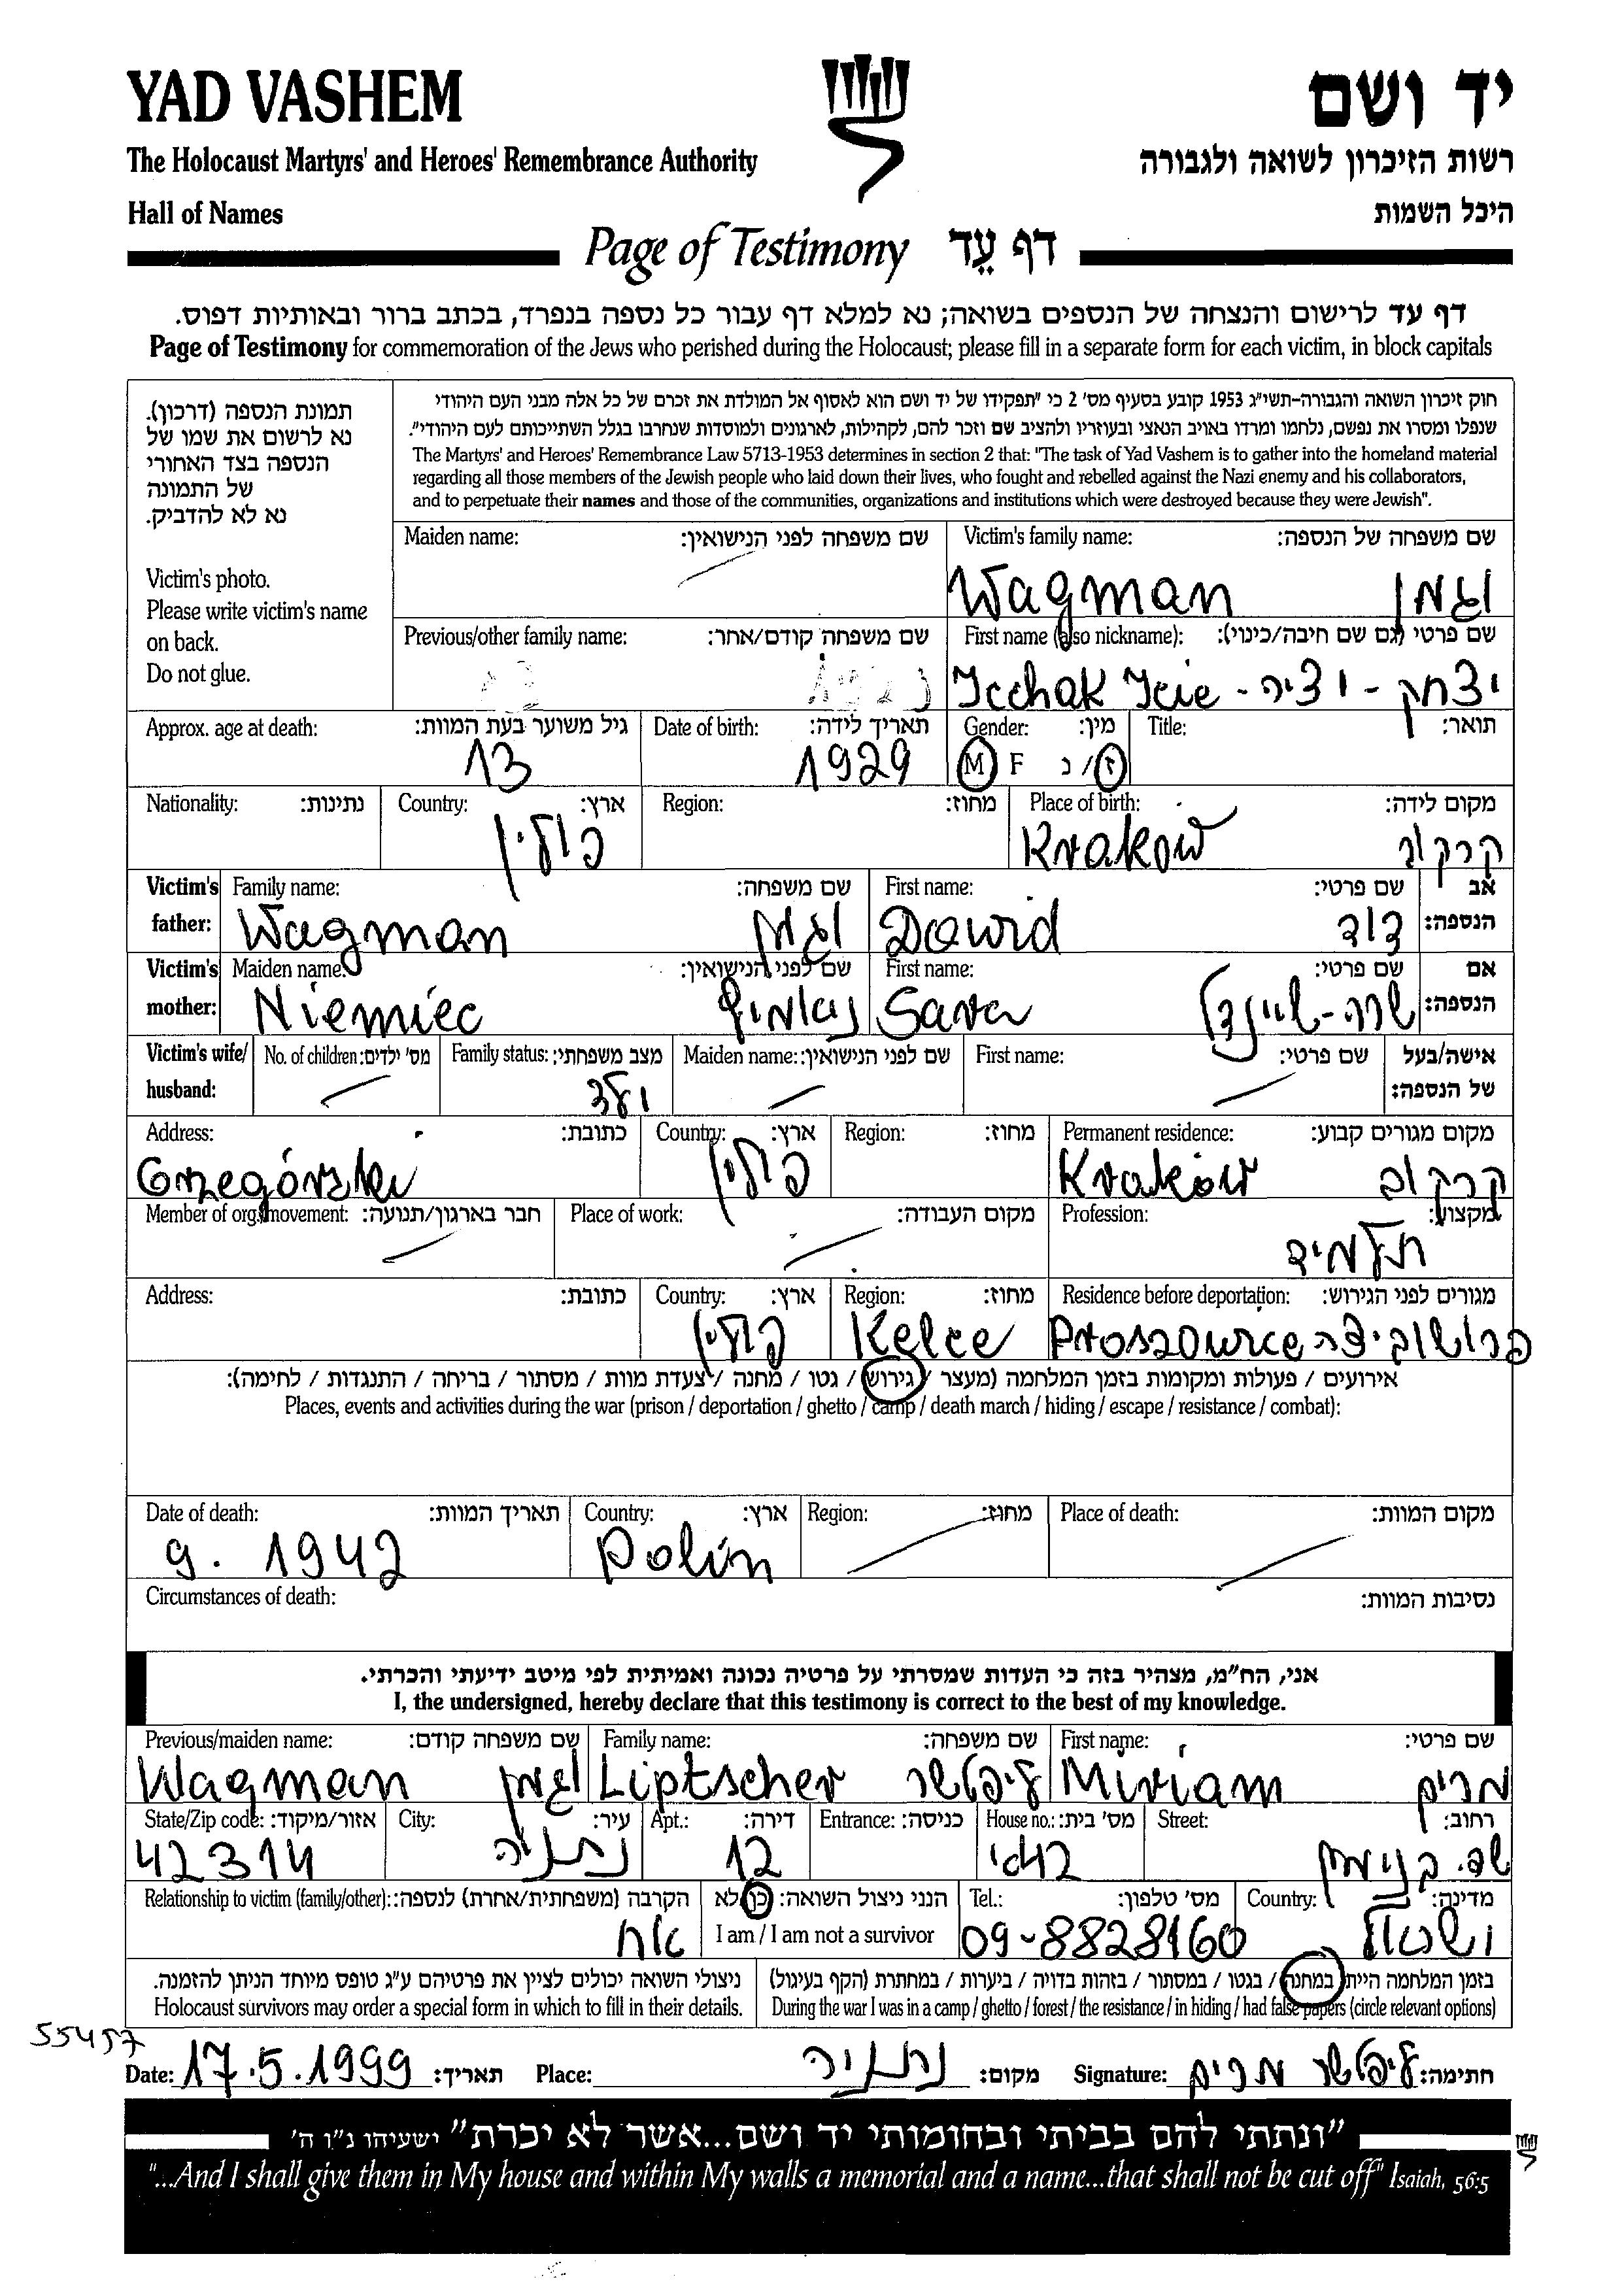 YAD VASHEM
יד ושם
The Holocaust Martyrs' and Heroes' Remembrance Authority
רשות הזיכרון לשואה ולגבורה
Hall of Names
היכל השמות
Page of Testimony דף עֵד
דף עד לרישום והנצחה של הנספים בשואה; נא למלא דף עבור כל נספה בנפרד, בכתב ברור ובאותיות דפוס.
Page of Testimony for commemoration of the Jews who perished during the Holocaust; please fill in a separate form for each victim, in block capitals
תמונת הנספה (דרכון).
נא לרשום את שמו של
הנספה בצד האחורי
של התמונה
נא לא להדביק.
Victim's photo.
Please write victim's name
on back.
Do not glue.
חוק זיכרון השואה והגבורה-תשי"ג 1953 קובע בסעיף מס' 2 כי "תפקידו של יד ושם הוא לאסוף אל המולדת את זכרם של כל אלה מבני העם היהודי
שנפלו ומסרו את נפשם, נלחמו ומרדו באויב הנאצי ובעוזריו ולהציב שם וזכר להם, לקהילות, לארגונים ולמוסדות שנחרבו בגלל השתייכותם לעם היהודי".
The Martyrs' and Heroes' Remembrance Law 5713-1953 determines in section 2 that: "The task of Yad Vashem is to gather into the homeland material
regarding all those members of the Jewish people who laid down their lives, who fought and rebelled against the Nazi enemy and his collaborators,
and to perpetuate their names and those of the communities, organizations and institutions which were destroyed because they were Jewish".
Maiden name: שם משפחה לפני הנישואין: Victim's family name: שם משפחה של הנספה:
Wagman וגמן
Previous/other family name: שם משפחה קודם/אחר: First name (also nickname): שם פרטי (גם שם חיבה/כינוי):
Icchak Icie - יצחק - ציה
Approx. age at death: גיל משוער בעת המוות: Date of birth: תאריך לידה: Gender: מין: Title: תואר:
13 1929 M F ז/נ
Nationality: נתינות: Country: ארץ: Region: מחוז: Place of birth: מקום לידה:
פולין Kraków קרקוב
Victim's father: Family name: שם משפחה: First name: שם פרטי: אב הנספה:
Wagman וגמן Dawid דוד
Victim's mother: Maiden name: שם לפני הנישואין: First name: שם פרטי: אם הנספה:
Niemiec Sara שרה-שיינדל
Victim's wife/ husband: No. of children: מס' ילדים: Family status: מצב משפחתי: Maiden name: שם לפני הנישואין: First name: שם פרטי: אישה/בעל של הנספה:
ילד
Address: כתובת: Country: ארץ: Region: מחוז: Permanent residence: מקום מגורים קבוע:
Grzegórzki פולין Kraków קרקוב
Member of org./movement: חבר בארגון/תנועה: Place of work: מקום העבודה: Profession: מקצוע:
תלמיד
Address: כתובת: Country: ארץ: Region: מחוז: Residence before deportation: מגורים לפני הגירוש:
פולין Kelce Proszowice פרושוביצה
אירועים / פעולות ומקומות בזמן המלחמה (מעצר / גירוש / גטו / מחנה / צעדת מוות / מסתור / בריחה / התנגדות / לחימה):
Places, events and activities during the war (prison / deportation / ghetto / camp / death march / hiding / escape / resistance / combat):
Date of death: תאריך המוות: Country: ארץ: Region: מחוז: Place of death: מקום המוות:
9. 1942 Polin
Circumstances of death: נסיבות המוות:
אני, הח"מ, מצהיר בזה כי העדות שמסרתי על פרטיה נכונה ואמיתית לפי מיטב ידיעתי והכרתי.
I, the undersigned, hereby declare that this testimony is correct to the best of my knowledge.
Previous/maiden name: שם משפחה קודם: Family name: שם משפחה: First name: שם פרטי:
Wagman וגמן Liptscher ליפטשר Miriam מרים
State/Zip code: אזור/מיקוד: City: עיר: Apt.: דירה: Entrance: כניסה: House no.: מס' בית: Street: רחוב:
42314 נתניה 12 שד. בנימין
Relationship to victim (family/other): הקרבה (משפחתית/אחרת) לנספה: הנני ניצול השואה: כן/לא Tel.: מס' טלפון: Country: מדינה:
אח I am / I am not a survivor 09-8828160 ישראל
ניצולי השואה יכולים לציין את פרטיהם ע"ג טופס מיוחד הניתן להזמנה. בזמן המלחמה הייתי במחנה / בגטו / במסתור / בזהות בדויה / ביערות / במחתרת (הקף בעיגול)
Holocaust survivors may order a special form in which to fill in their details. During the war I was in a camp / ghetto / forest / the resistance / in hiding / had false papers (circle relevant options)
55457
Date: 17.5.1999 תאריך: Place: נתניה מקום: Signature: ליפטשר מרים חתימה:
"ונתתי להם בביתי ובחומותי יד ושם...אשר לא יכרת" ישעיהו נ"ו ה'
"...And I shall give them in My house and within My walls a memorial and a name...that shall not be cut off" Isaiah, 56:5